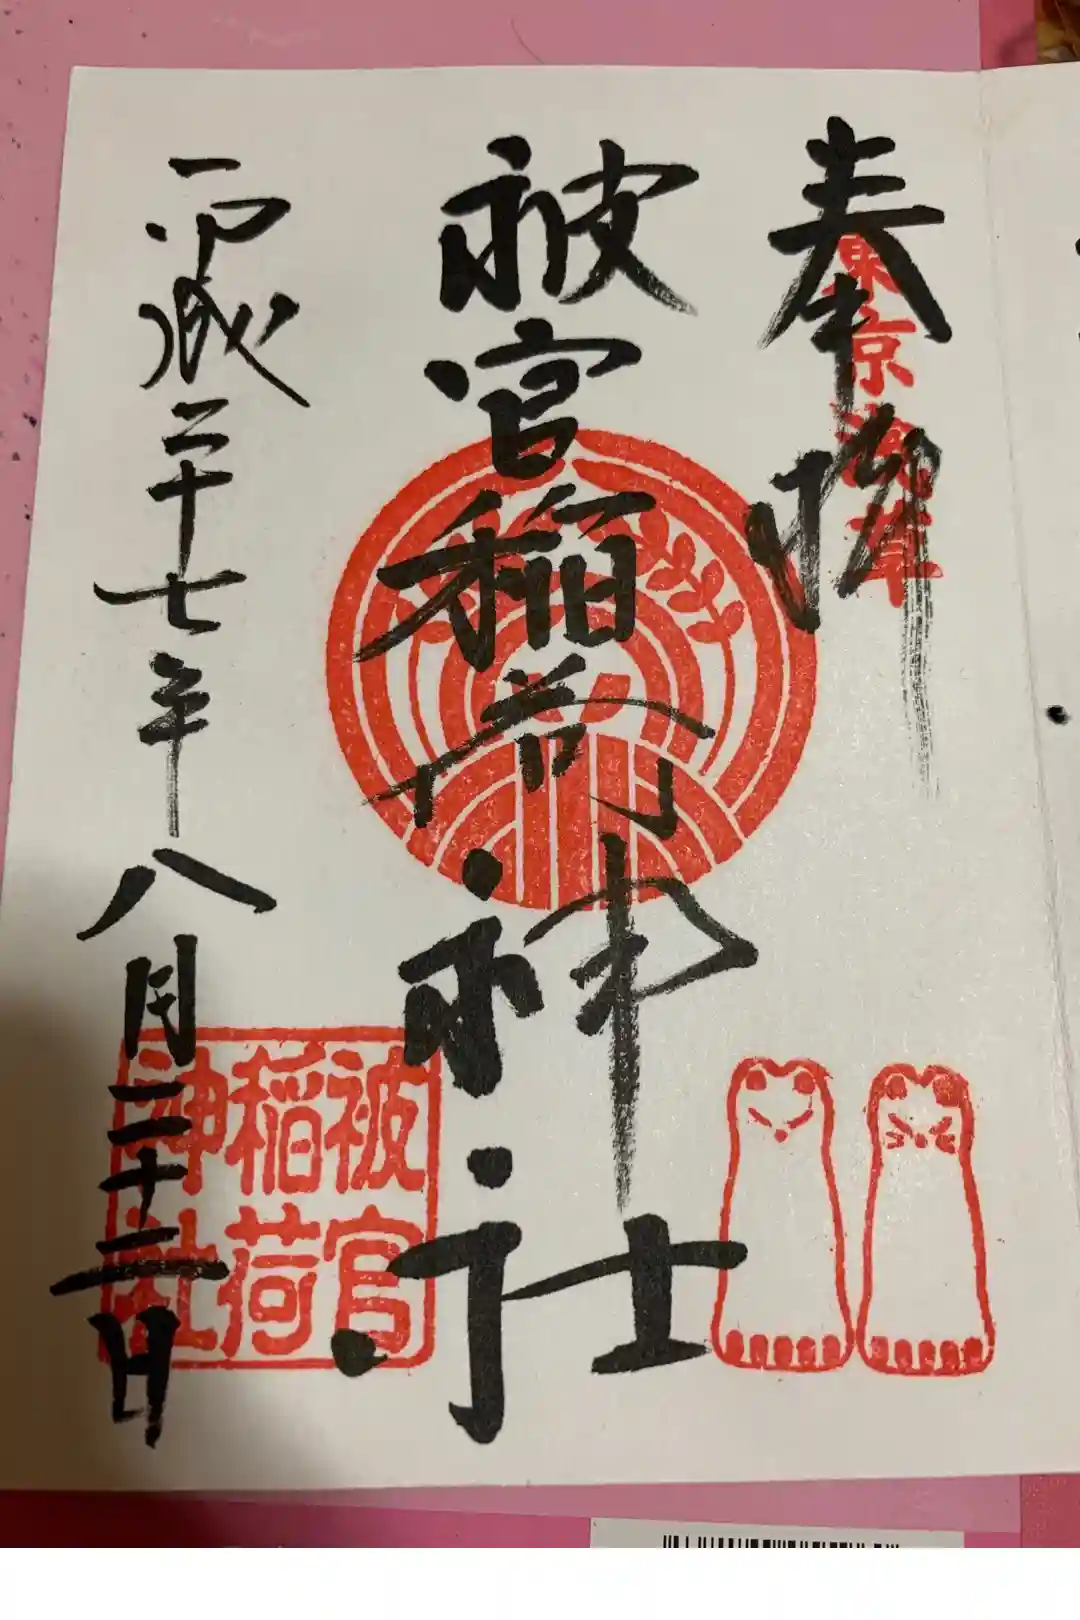 奉拝
東京浅草
被官稲荷神社
被官
稲荷
神社
平成二十七年八月二十二日